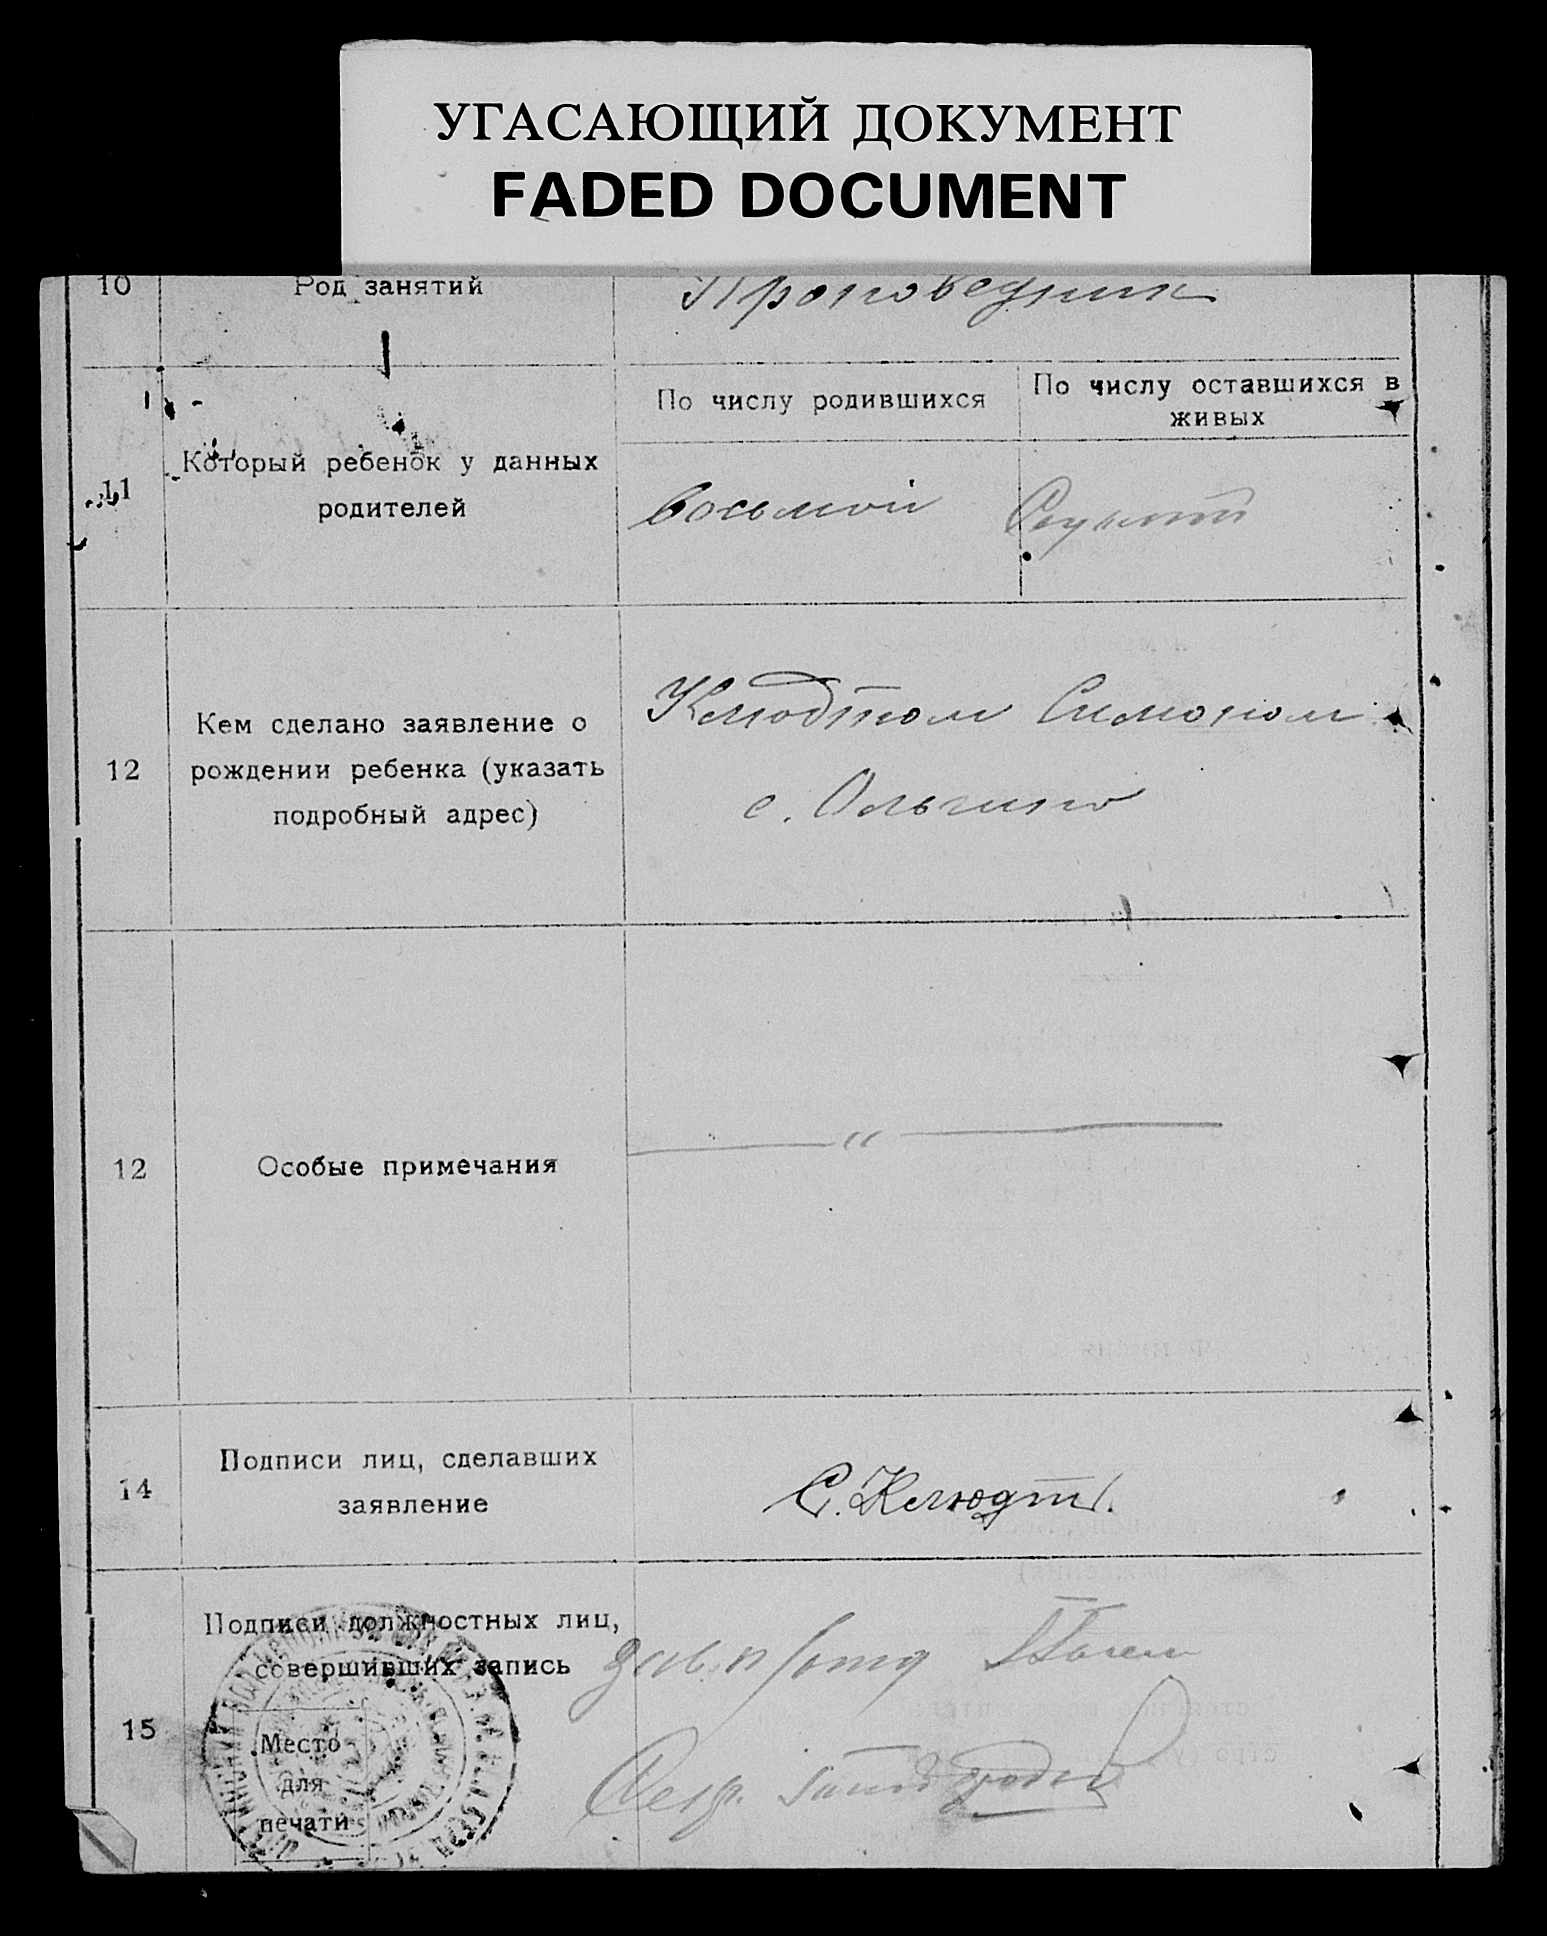 УГАСАЮЩИЙ ДОКУМЕНТ
FADED DOCUMENT
10 Род занятий Проповедник
По числу родившихся По числу оставшихся в
живых
11 Который ребенок у данных
родителей
восьмой
12 Кем сделано заявление о
рождении ребенка (указать
подробный адрес)
Клюдтом Симоном
с. Ольгино
12 Особые примечания
— " —
14 Подписи лиц, сделавших
заявление
С. Клюдт.
15 Подписи должностных лиц,
совершивших запись
Место
для
печати